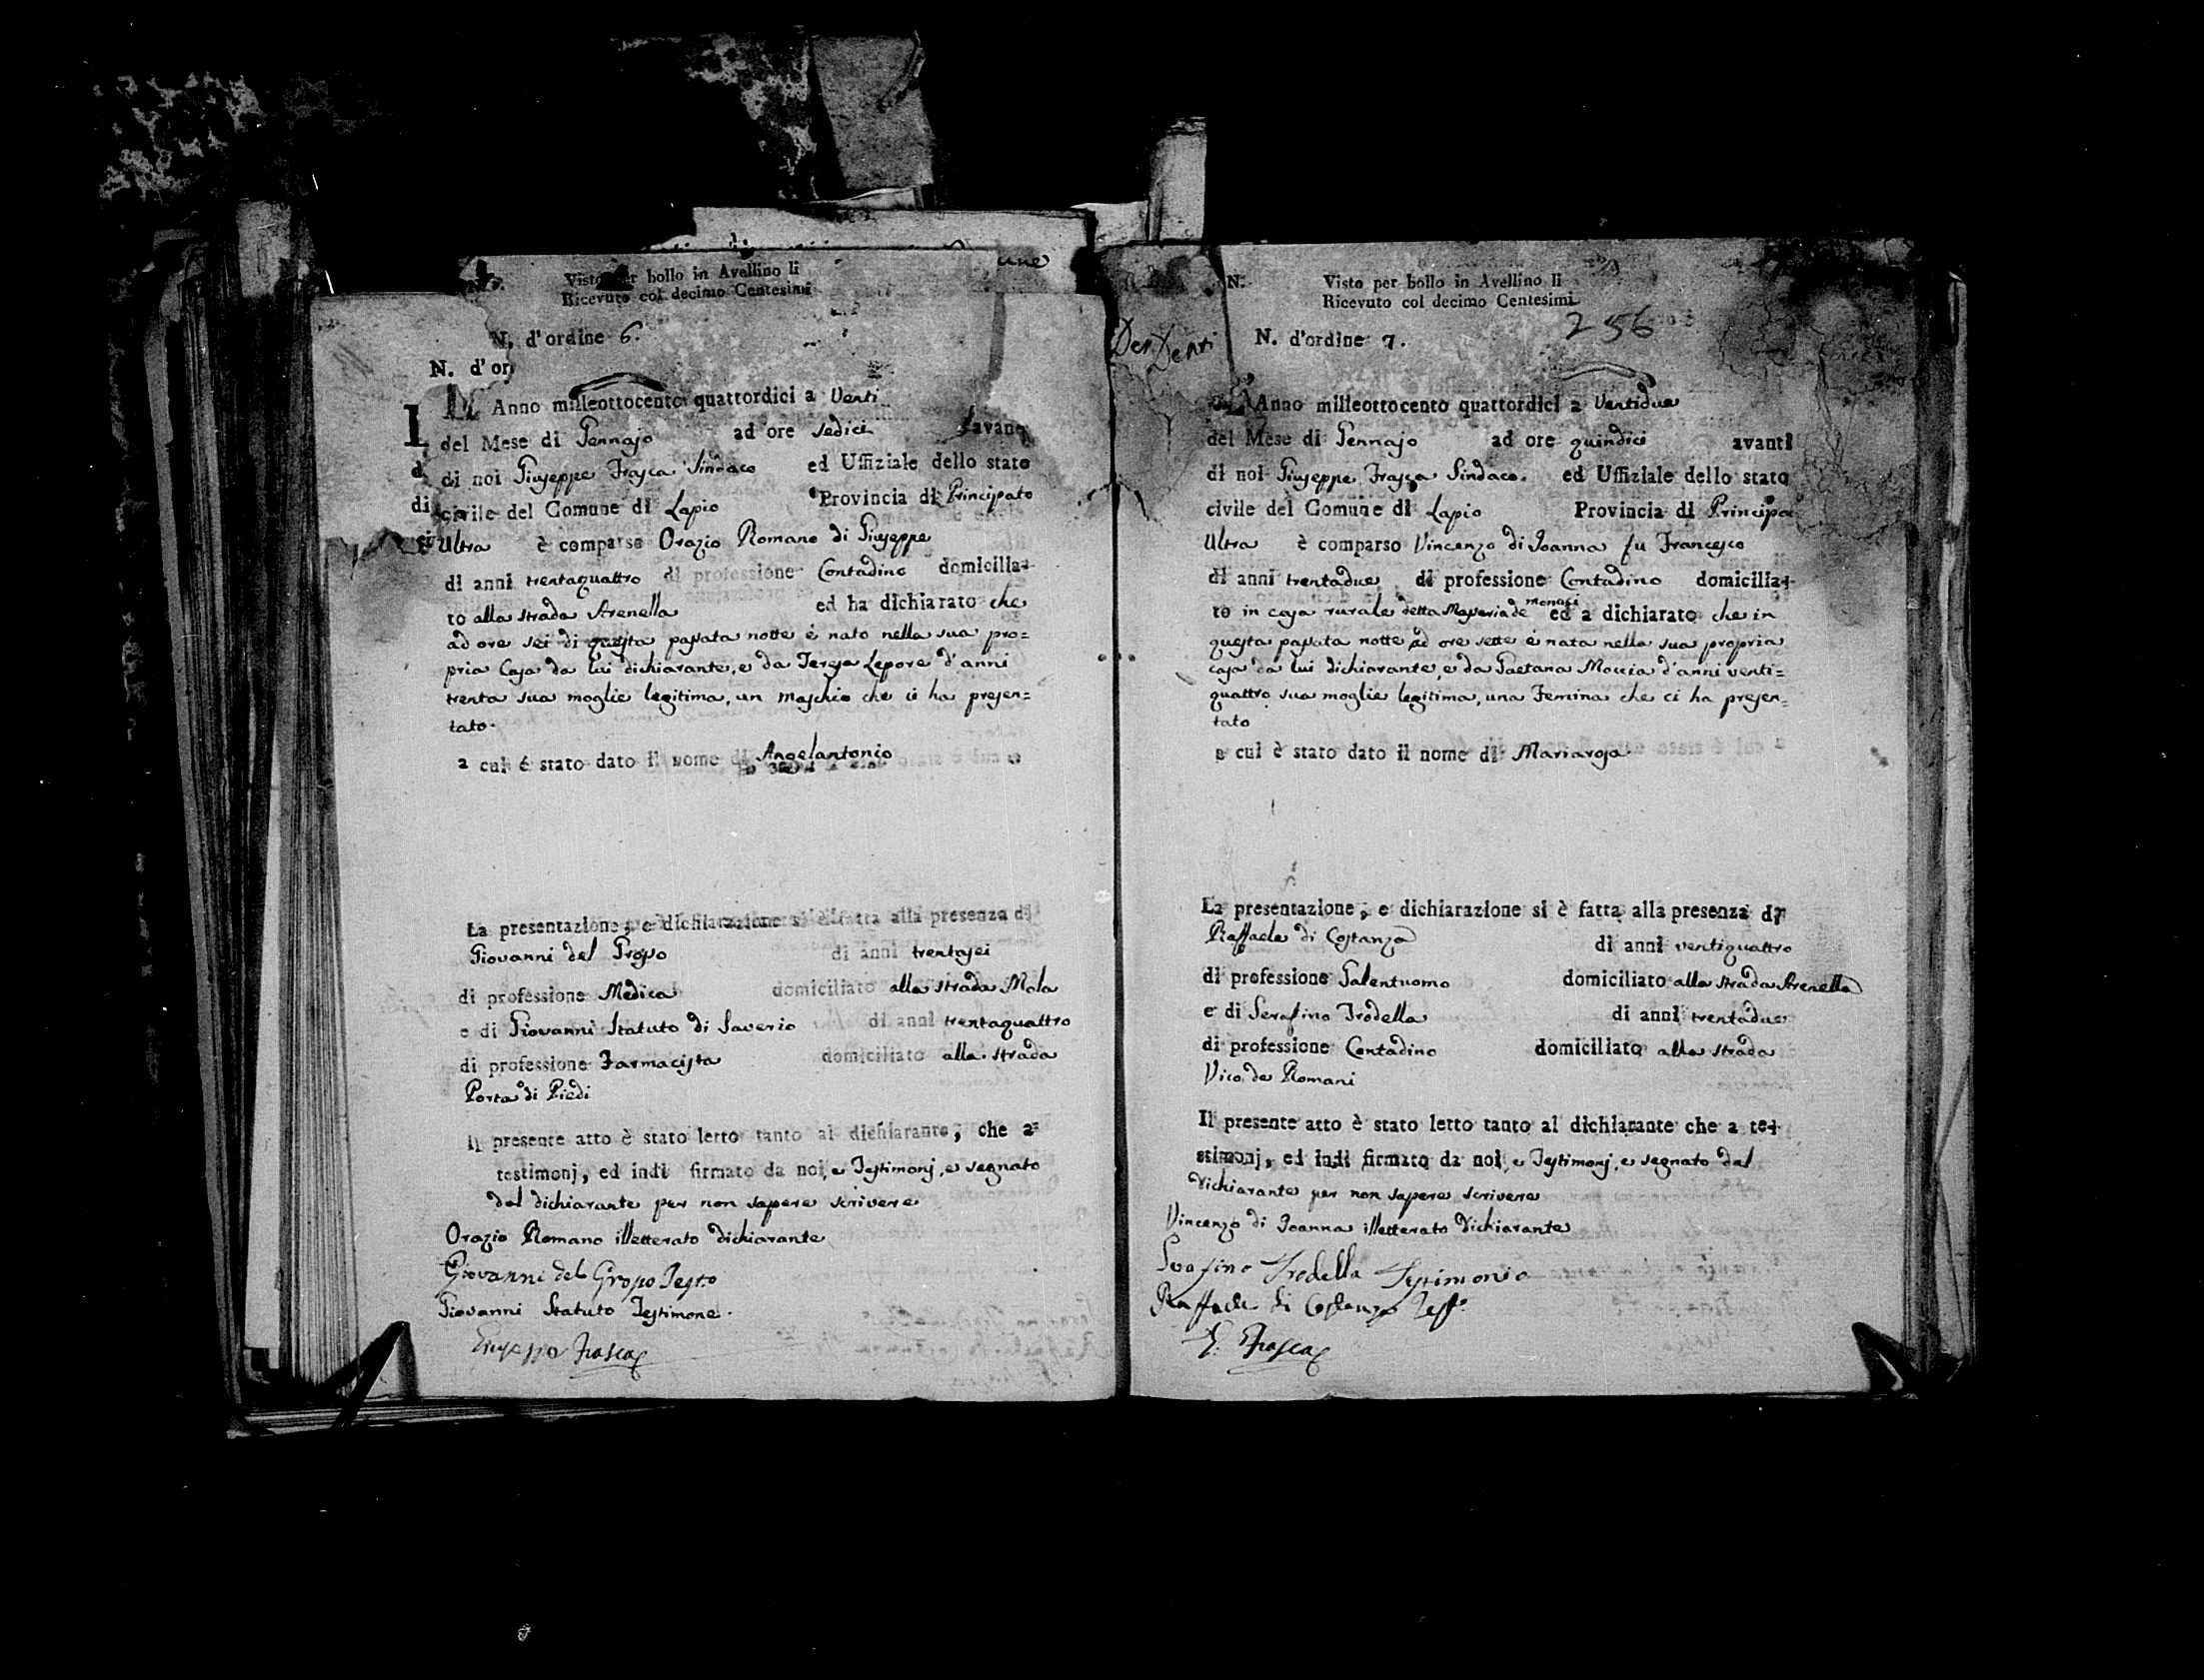 une
Visto per bollo in Avellino li
Ricevuto col decimo Centesimi
N. d'ordine 6.
N. d'or
Anno milleottocento quattordici a Venti
del Mese di Gennajo ad ore sedici avan
di noi Giuseppe Frasca Sindaco ed Uffiziale dello stato
civile del Comune di Lapio Provincia di Principato
Ultra è comparso Orazio Romano di Giuseppe
di anni trentaquattro di professione Contadino domicilia-
to alla strada Arenella ed ha dichiarato che
ad ore sei di questa passata notte è nato nella sua pro=
pria Casa da lui dichiarante, e da Teresa Lepore d'anni
trenta sua moglie legitima, un maschio che ci ha presen=
tato.
a cui é stato dato il nome di Angelantonio
La presentazione, e dichiarazione si è fatta alla presenza di
Giovanni del Grosso di anni trentasei
di professione Medico domiciliato alla strada Mola
e di Giovanni Statuto di Saverio di anni trentaquattro
di professione Farmacista domiciliato alla strada
Porta di Piedi
Il presente atto è stato letto tanto al dichiarante, che a
testimonj, ed indi firmato da noi, e Testimonj, e segnato
dal dichiarante per non sapere scrivere
Orazio Romano illetterato dichiarante
Giovanni del Grosso Testo
Giovanni Statuto Testimone.
Giuseppe Frasca
N. Visto per bollo in Avellino li
Ricevuto col decimo Centesimi
256
N. d'ordine 7.
Anno milleottocento quattordici a Ventidue
del Mese di Gennajo ad ore quindici avanti
di noi Giuseppe Frasca Sindaco. ed Uffiziale dello stato
civile del Comune di Lapio Provincia di Principa
Ultra è comparso Vincenzo di Joanna fu Francesco
di anni trentadue di professione Contadino domicilia-
to in casa rurale detta Masseria de monaci ed a dichiarato che in
questa passata notte ad ore sette è nata nella sua propria
casa da lui dichiarante, e da Gaetana Moccia d'anni venti=
quattro sua moglie legitima, una Femina che ci ha presen=
tato
a cui è stato dato il nome di Mariarosa
La presentazione, e dichiarazione si è fatta alla presenza di
Raffaele di Costanzo di anni ventiquattro
di professione Galentuomo domiciliato alla strada Arenella
e di Serafino Trodella di anni trentadue
di professione Contadino domiciliato alla strada
Vico de Romani
Il presente atto è stato letto tanto al dichiarante che a te-
stimonj, ed indi firmato da noi, e Testimonj, e segnato dal
dichiarante per non sapere scrivere
Vincenzo di Joanna illetterato dichiarante
Serafino Trodella Testimonio
Raffaele di Costanzo Testo
G. Frasca